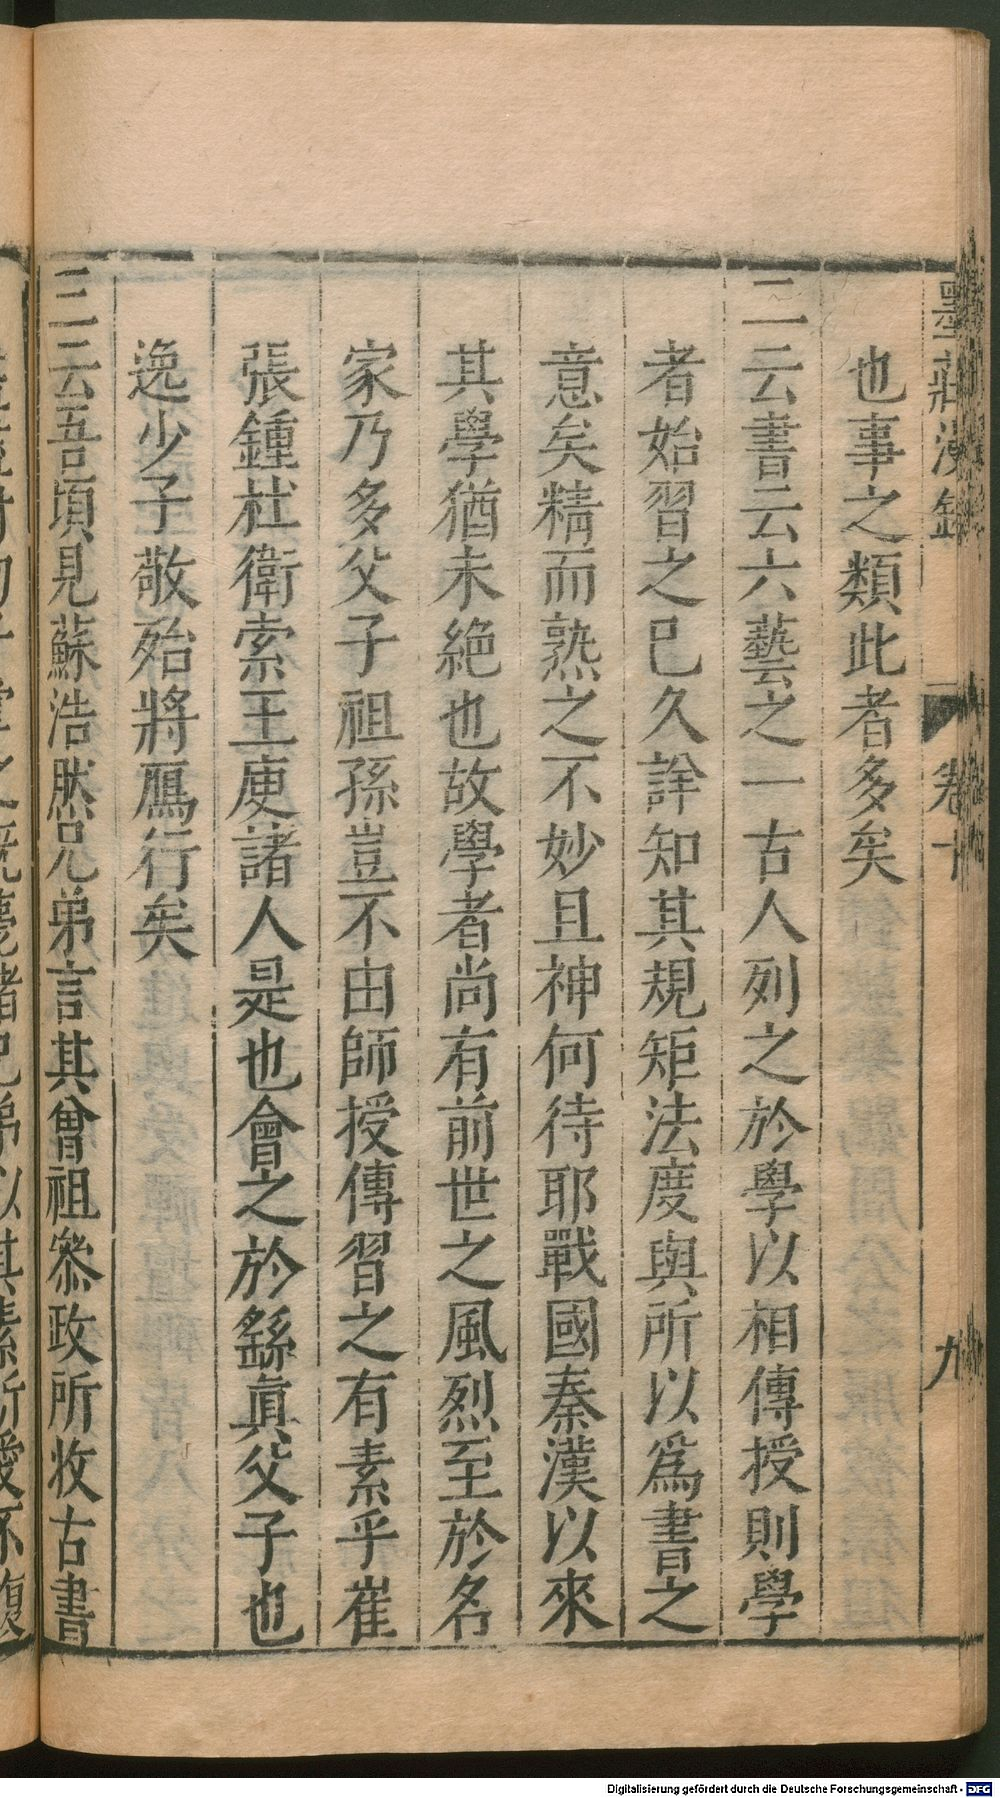 墨莊漫錄 卷十 九
也事之類此者多矣
二云書云六藝之一古人列之於學以相傳授則學
者始習之已久詳知其規矩法度與所以爲書之
意矣精而熟之不妙且神何待耶戰國秦漢以來
其學猶未絕也故學者尚有前世之風烈至於名
家乃多父子祖孫豈不由師授傳習之有素乎崔
張鍾杜衛索王庾諸人是也會之於繇眞父子也
逸少子敬殆將鴈行矣
三云吾頃見蘇浩然兄弟言其曾祖叅政所收古書
Digitalisierung gefördert durch die Deutsche Forschungsgemeinschaft - DFG